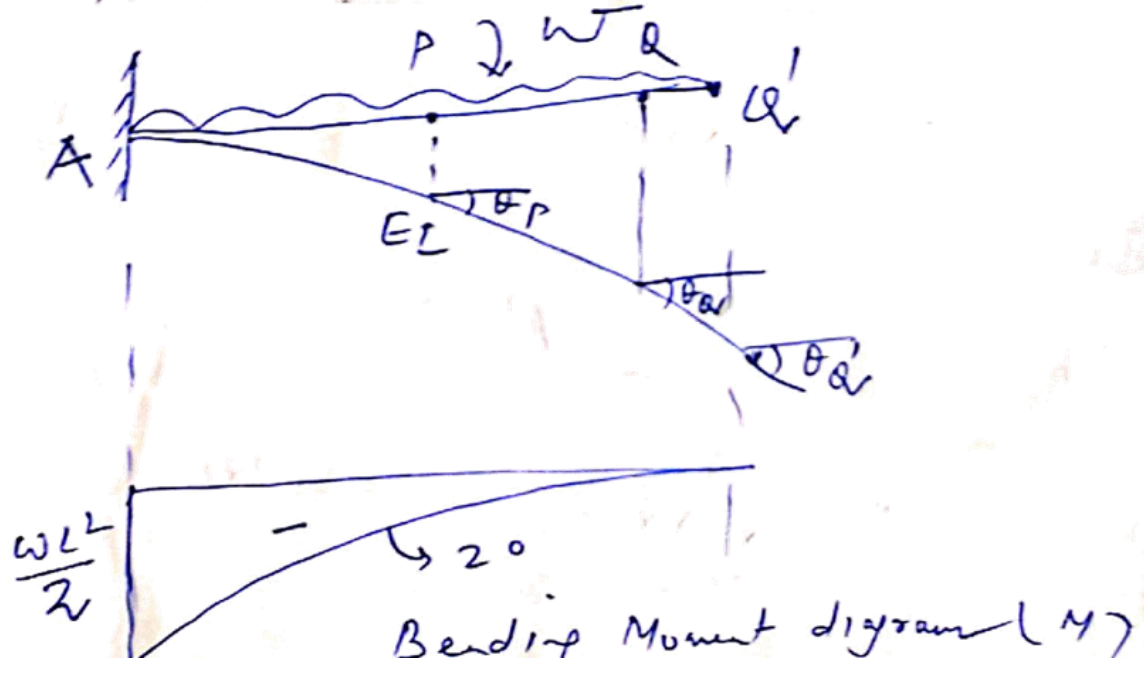 P w Q
Q'
A
θP
EI
θQ
θQ'
wL²
2
–
2°
Bending Moment digram (M)